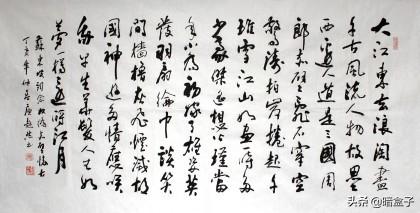 大江東去浪淘盡
千古風流人物故壘
西邊人道是三國周
郎赤壁亂石穿空
驚濤拍岸捲起千
堆雪江山如畫一時多
少豪傑遙想公瑾當
年小喬初嫁了雄姿英
發羽扇綸巾談笑
間檣櫓灰飛煙滅故
國神遊多情應笑
我早生華髮人生如
夢一樽還酹江月
蘇東坡詞念奴嬌赤壁懷古
丁亥年
头条 @暗盒子